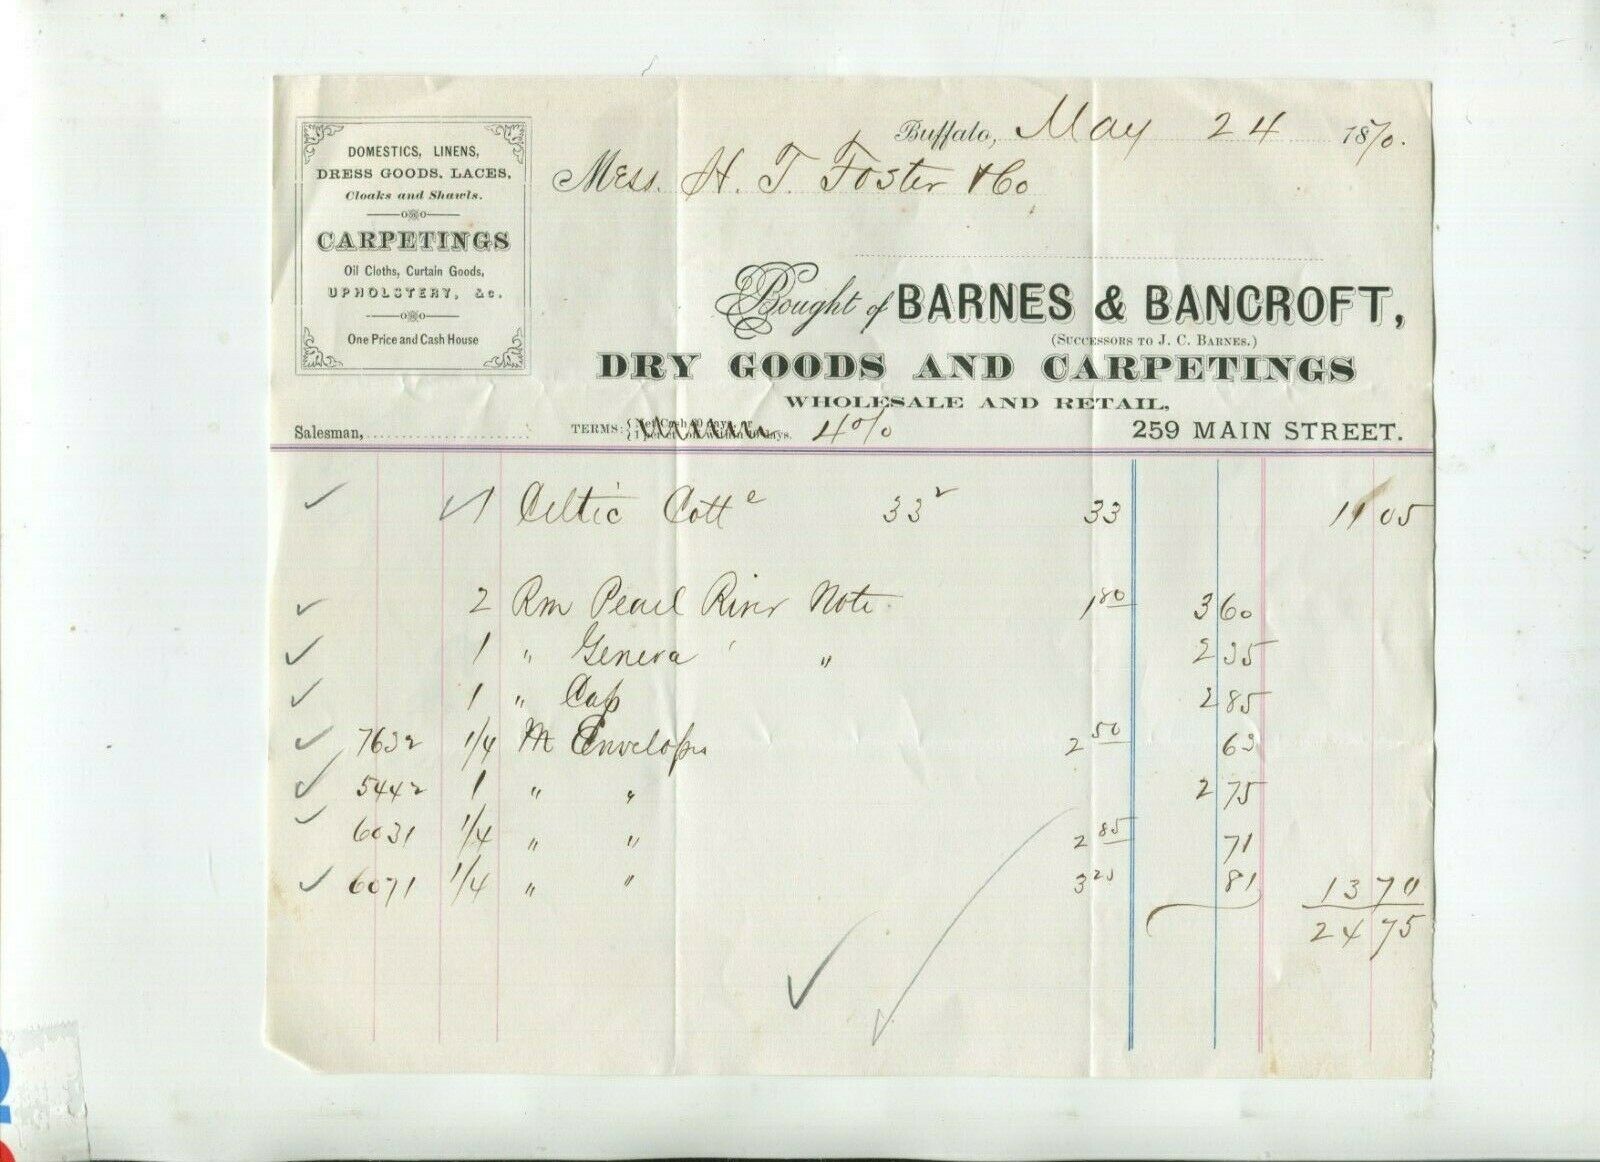 DOMESTICS, LINENS,
DRESS GOODS, LACES,
Cloaks and Shawls.
CARPETINGS
Oil Cloths, Curtain Goods,
UPHOLSTERY, &c.
One Price and Cash House
Buffalo, May 24 1870.
Mess. H. T. Foster & Co
Bought of BARNES & BANCROFT,
(SUCCESSORS TO J. C. BARNES.)
DRY GOODS AND CARPETINGS
WHOLESALE AND RETAIL,
Salesman, TERMS: 4% 259 MAIN STREET.
1 Celtic Cott e 33 2 33 11 05
2 Rm Pearl River Note 1 80 3 60
1 " Geneva " 2 35
1 " Cap 2 85
7632 1/4 M Envelopes 2 50 63
5442 1 " " 2 75
6031 1/4 " " 2 85 71
6071 1/4 " " 3 25 81 13 70
24 75